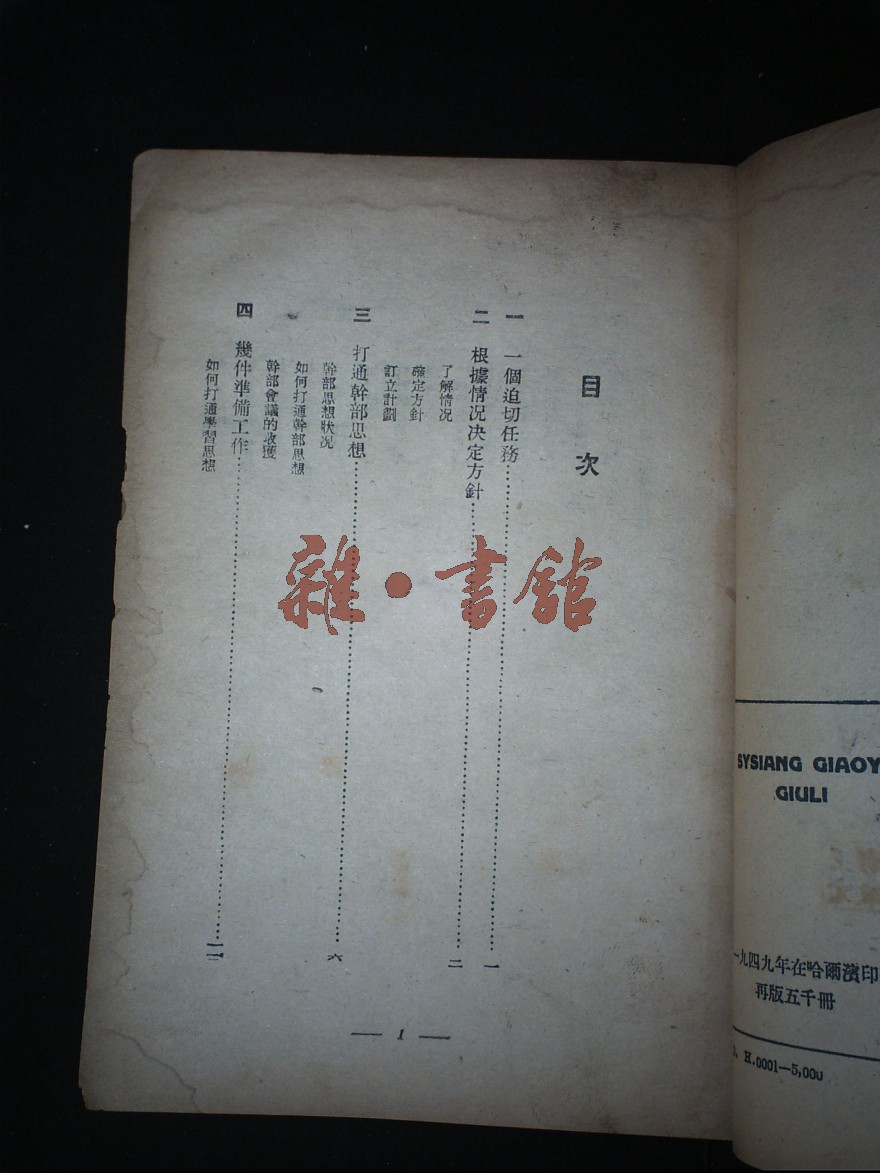 目次
一 一個迫切任務……一
二 根據情況決定方針……二
了解情況
確定方針
訂立計劃
三 打通幹部思想……六
幹部思想狀況
如何打通幹部思想
幹部會議的收獲
四 幾件準備工作……
如何打通學習思想
— 1 —
雜·書館
SYSIANG GIAOY
GIULI
一九四九年在哈爾濱印
再版五千冊
H.0001—5,000